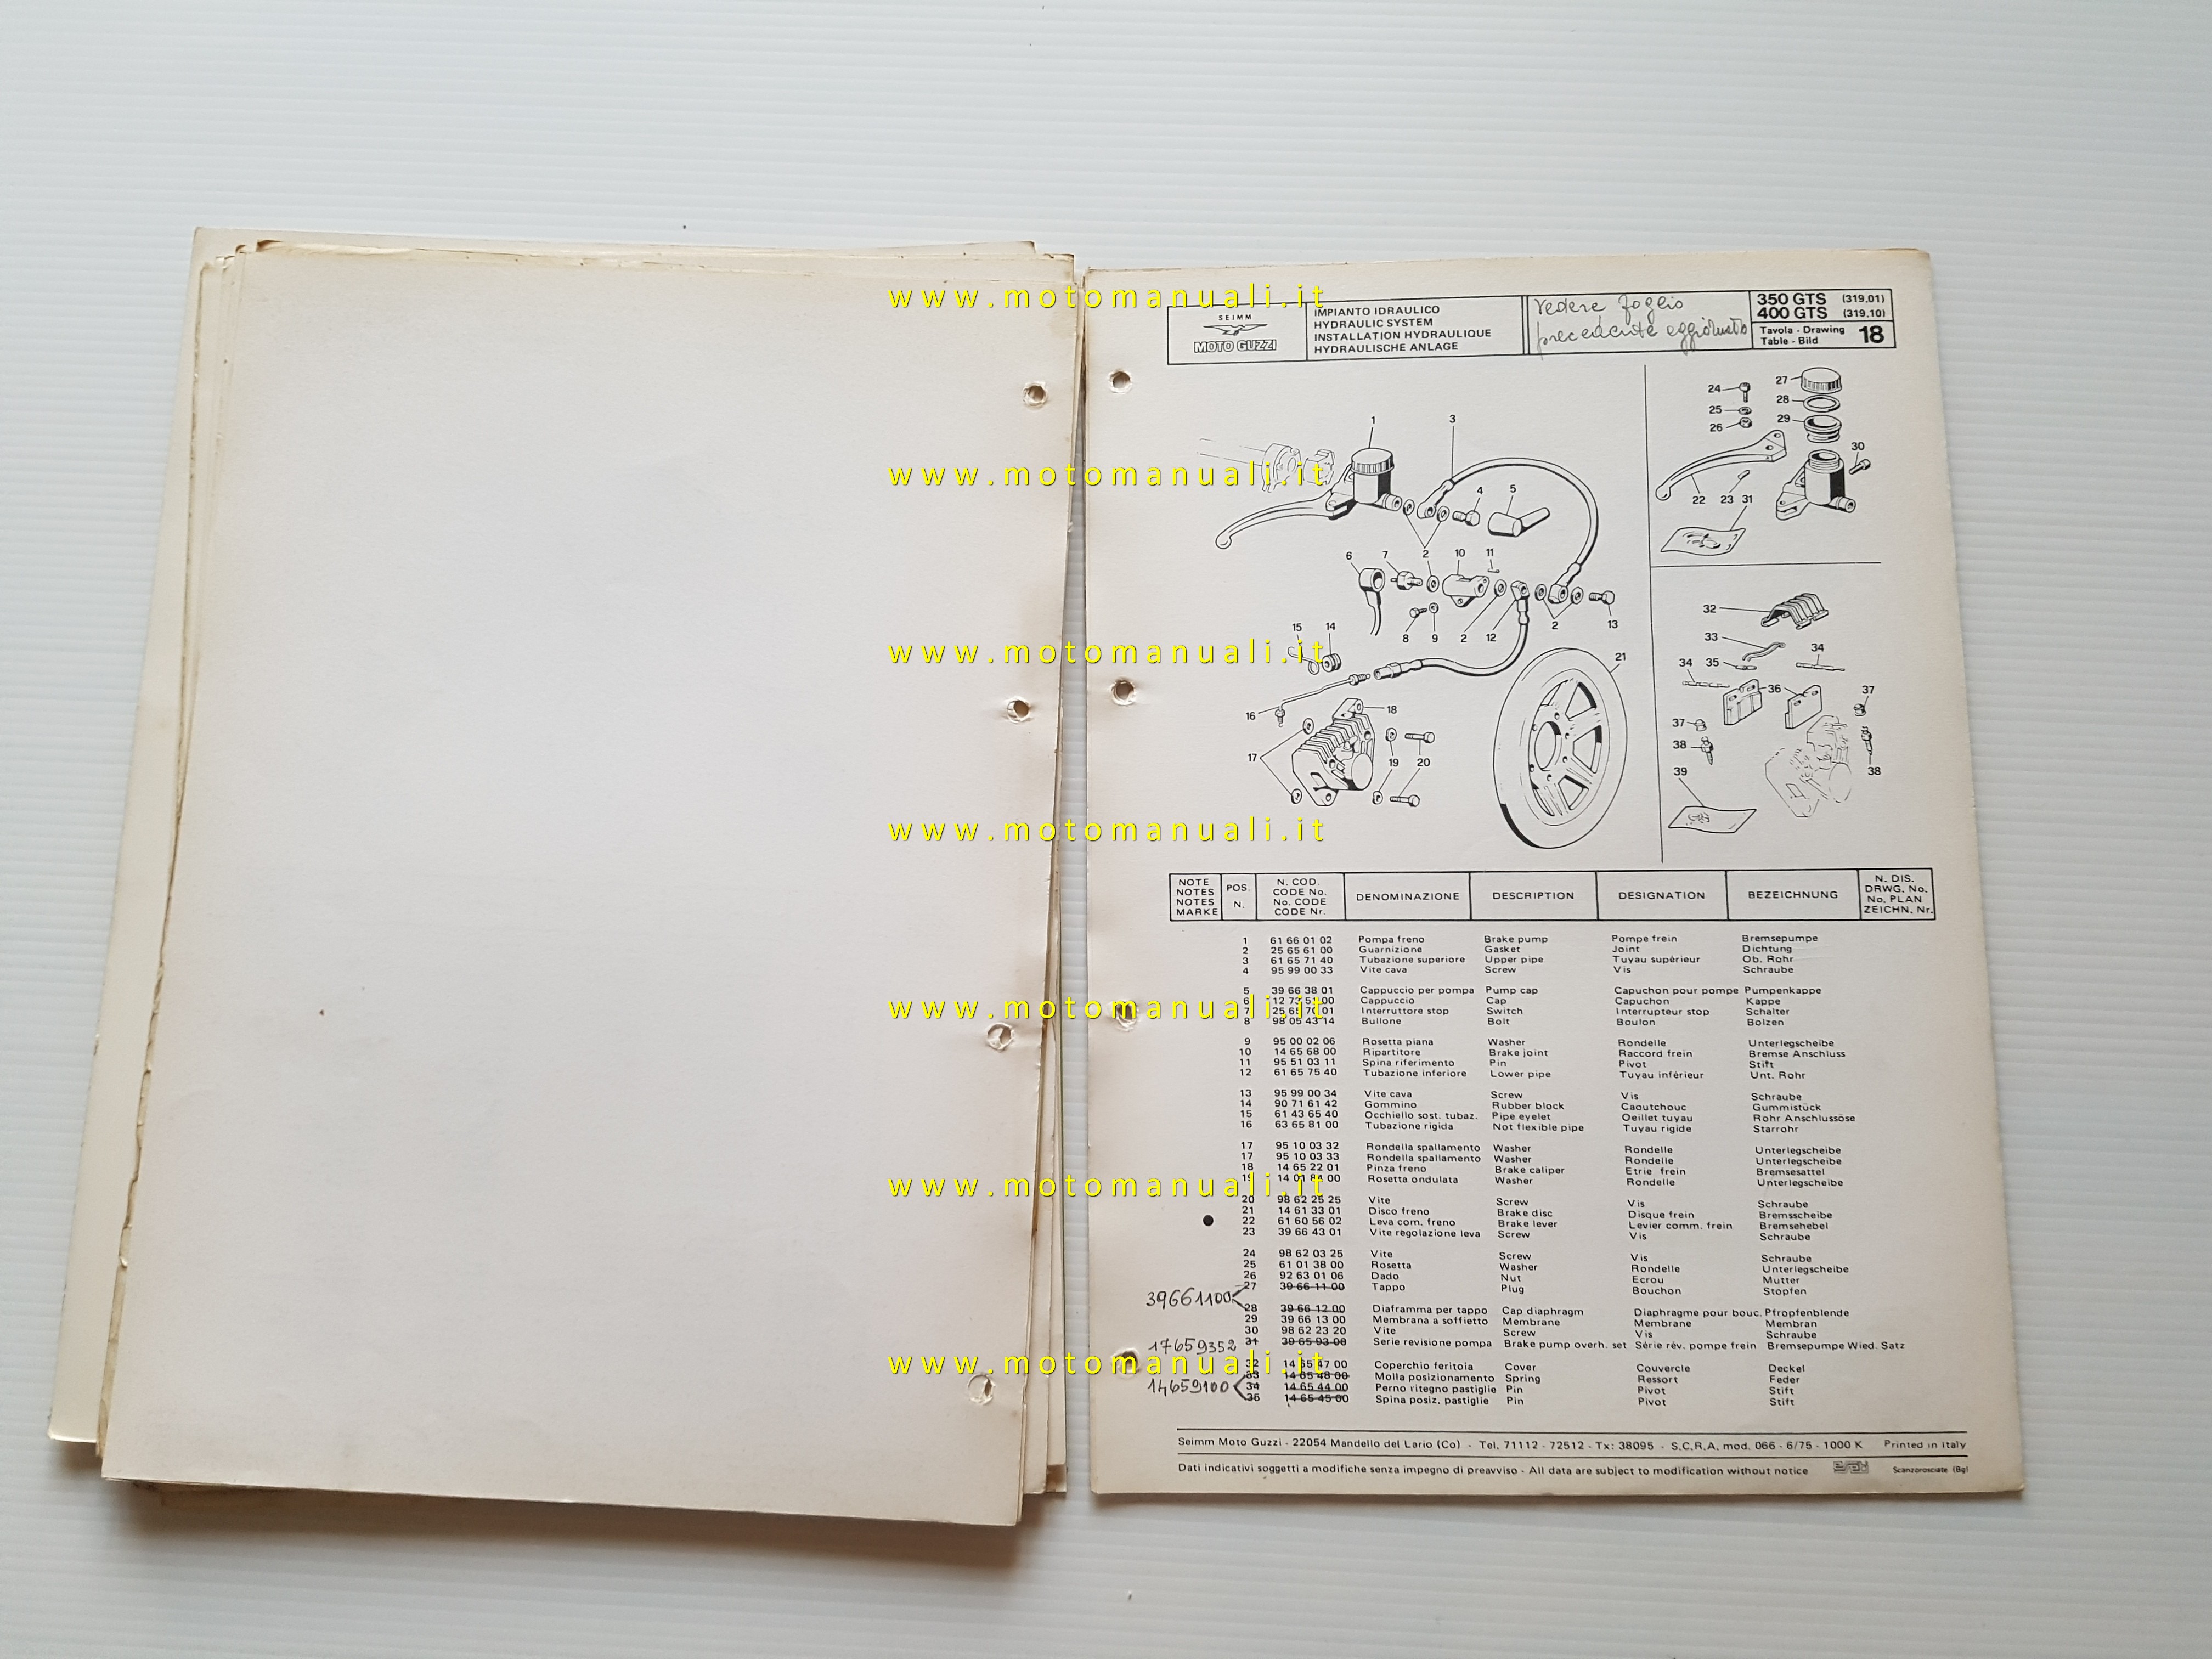 SEIMM
MOTO GUZZI
IMPIANTO IDRAULICO
HYDRAULIC SYSTEM
INSTALLATION HYDRAULIQUE
HYDRAULISCHE ANLAGE
vedere foglio
precedente aggiornato
350 GTS (319.01)
400 GTS (319.10)
Tavola - Drawing
Table - Bild
18
www.motomanuali.it
www.motomanuali.it
www.motomanuali.it
www.motomanuali.it
www.motomanuali.it
www.motomanuali.it
www.motomanuali.it
1 3 4 5
6 7 2 10 11
8 9 2 12 2 13
15 14 21
16 18
17 19 20
24 27
25 28
26 29
30
22 23 31
32
33
34 35 34
36 37
37
38 38
39
NOTE
NOTES
NOTES
MARKE
POS.
N.
N. COD.
CODE No.
No. CODE
CODE Nr.
DENOMINAZIONE
DESCRIPTION
DESIGNATION
BEZEICHNUNG
N. DIS.
DRWG. No.
No. PLAN
ZEICHN. Nr.
1 61 66 01 02 Pompa freno Brake pump Pompe frein Bremsepumpe
2 25 65 61 00 Guarnizione Gasket Joint Dichtung
3 61 65 71 40 Tubazione superiore Upper pipe Tuyau supèrieur Ob. Rohr
4 95 99 00 33 Vite cava Screw Vis Schraube
5 39 66 38 01 Cappuccio per pompa Pump cap Capuchon pour pompe Pumpenkappe
6 Cappuccio Cap Capuchon Kappe
7 Interruttore stop Switch Interrupteur stop Schalter
8 98 05 43 14 Bullone Bolt Boulon Bolzen
9 95 00 02 06 Rosetta piana Washer Rondelle Unterlegscheibe
10 14 65 68 00 Ripartitore Brake joint Raccord frein Bremse Anschluss
11 95 51 03 11 Spina riferimento Pin Pivot Stift
12 61 65 75 40 Tubazione inferiore Lower pipe Tuyau inférieur Unt. Rohr
13 95 99 00 34 Vite cava Screw Vis Schraube
14 90 71 61 42 Gommino Rubber block Caoutchouc Gummistück
15 61 43 65 40 Occhiello sost. tubaz. Pipe eyelet Oeillet tuyau Rohr Anschlussöse
16 63 65 81 00 Tubazione rigida Not flexible pipe Tuyau rigide Starrohr
17 95 10 03 32 Rondella spallamento Washer Rondelle Unterlegscheibe
17 95 10 03 33 Rondella spallamento Washer Rondelle Unterlegscheibe
18 14 65 22 01 Pinza freno Brake caliper Etrie frein Bremsesattel
19 Rosetta ondulata Washer Rondelle Unterlegscheibe
20 98 62 25 25 Vite Screw Vis Schraube
21 14 61 33 01 Disco freno Brake disc Disque frein Bremsscheibe
● 22 61 60 56 02 Leva com. freno Brake lever Levier comm. frein Bremsehebel
23 39 66 43 01 Vite regolazione leva Screw Vis Schraube
24 98 62 03 25 Vite Screw Vis Schraube
25 61 01 38 00 Rosetta Washer Rondelle Unterlegscheibe
26 92 63 01 06 Dado Nut Ecrou Mutter
27 39 66 11 00 Tappo Plug Bouchon Stopfen
39661100
28 39 66 12 00 Diaframma per tappo Cap diaphragm Diaphragme pour bouc. Pfropfenblende
29 39 66 13 00 Membrana a soffietto Membrane Membrane Membran
30 98 62 23 20 Vite Screw Vis Schraube
17659352 31 39 65 93 00 Serie revisione pompa Brake pump overh. set Série rév. pompe frein Bremsepumpe Wied. Satz
32 14 65 47 00 Coperchio feritoia Cover Couvercle Deckel
33 14 65 48 00 Molla posizionamento Spring Ressort Feder
14659100 34 14 65 44 00 Perno ritegno pastiglie Pin Pivot Stift
35 14 65 45 00 Spina posiz. pastiglie Pin Pivot Stift
Seimm Moto Guzzi - 22054 Mandello del Lario (Co) - Tel. 71112 - 72512 - Tx: 38095 - S.C.R.A. mod. 066 - 6/75 - 1000 K Printed in Italy
Dati indicativi soggetti a modifiche senza impegno di preavviso - All data are subject to modification without notice Scanzorosciate (Bg)